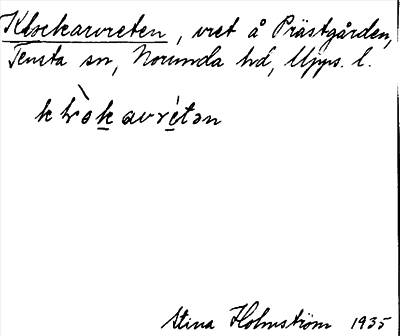 Klockarvreten, vret å Prästgården,
Tensta sn, Norunda hd, Upps. l.
Stina Holmström 1935